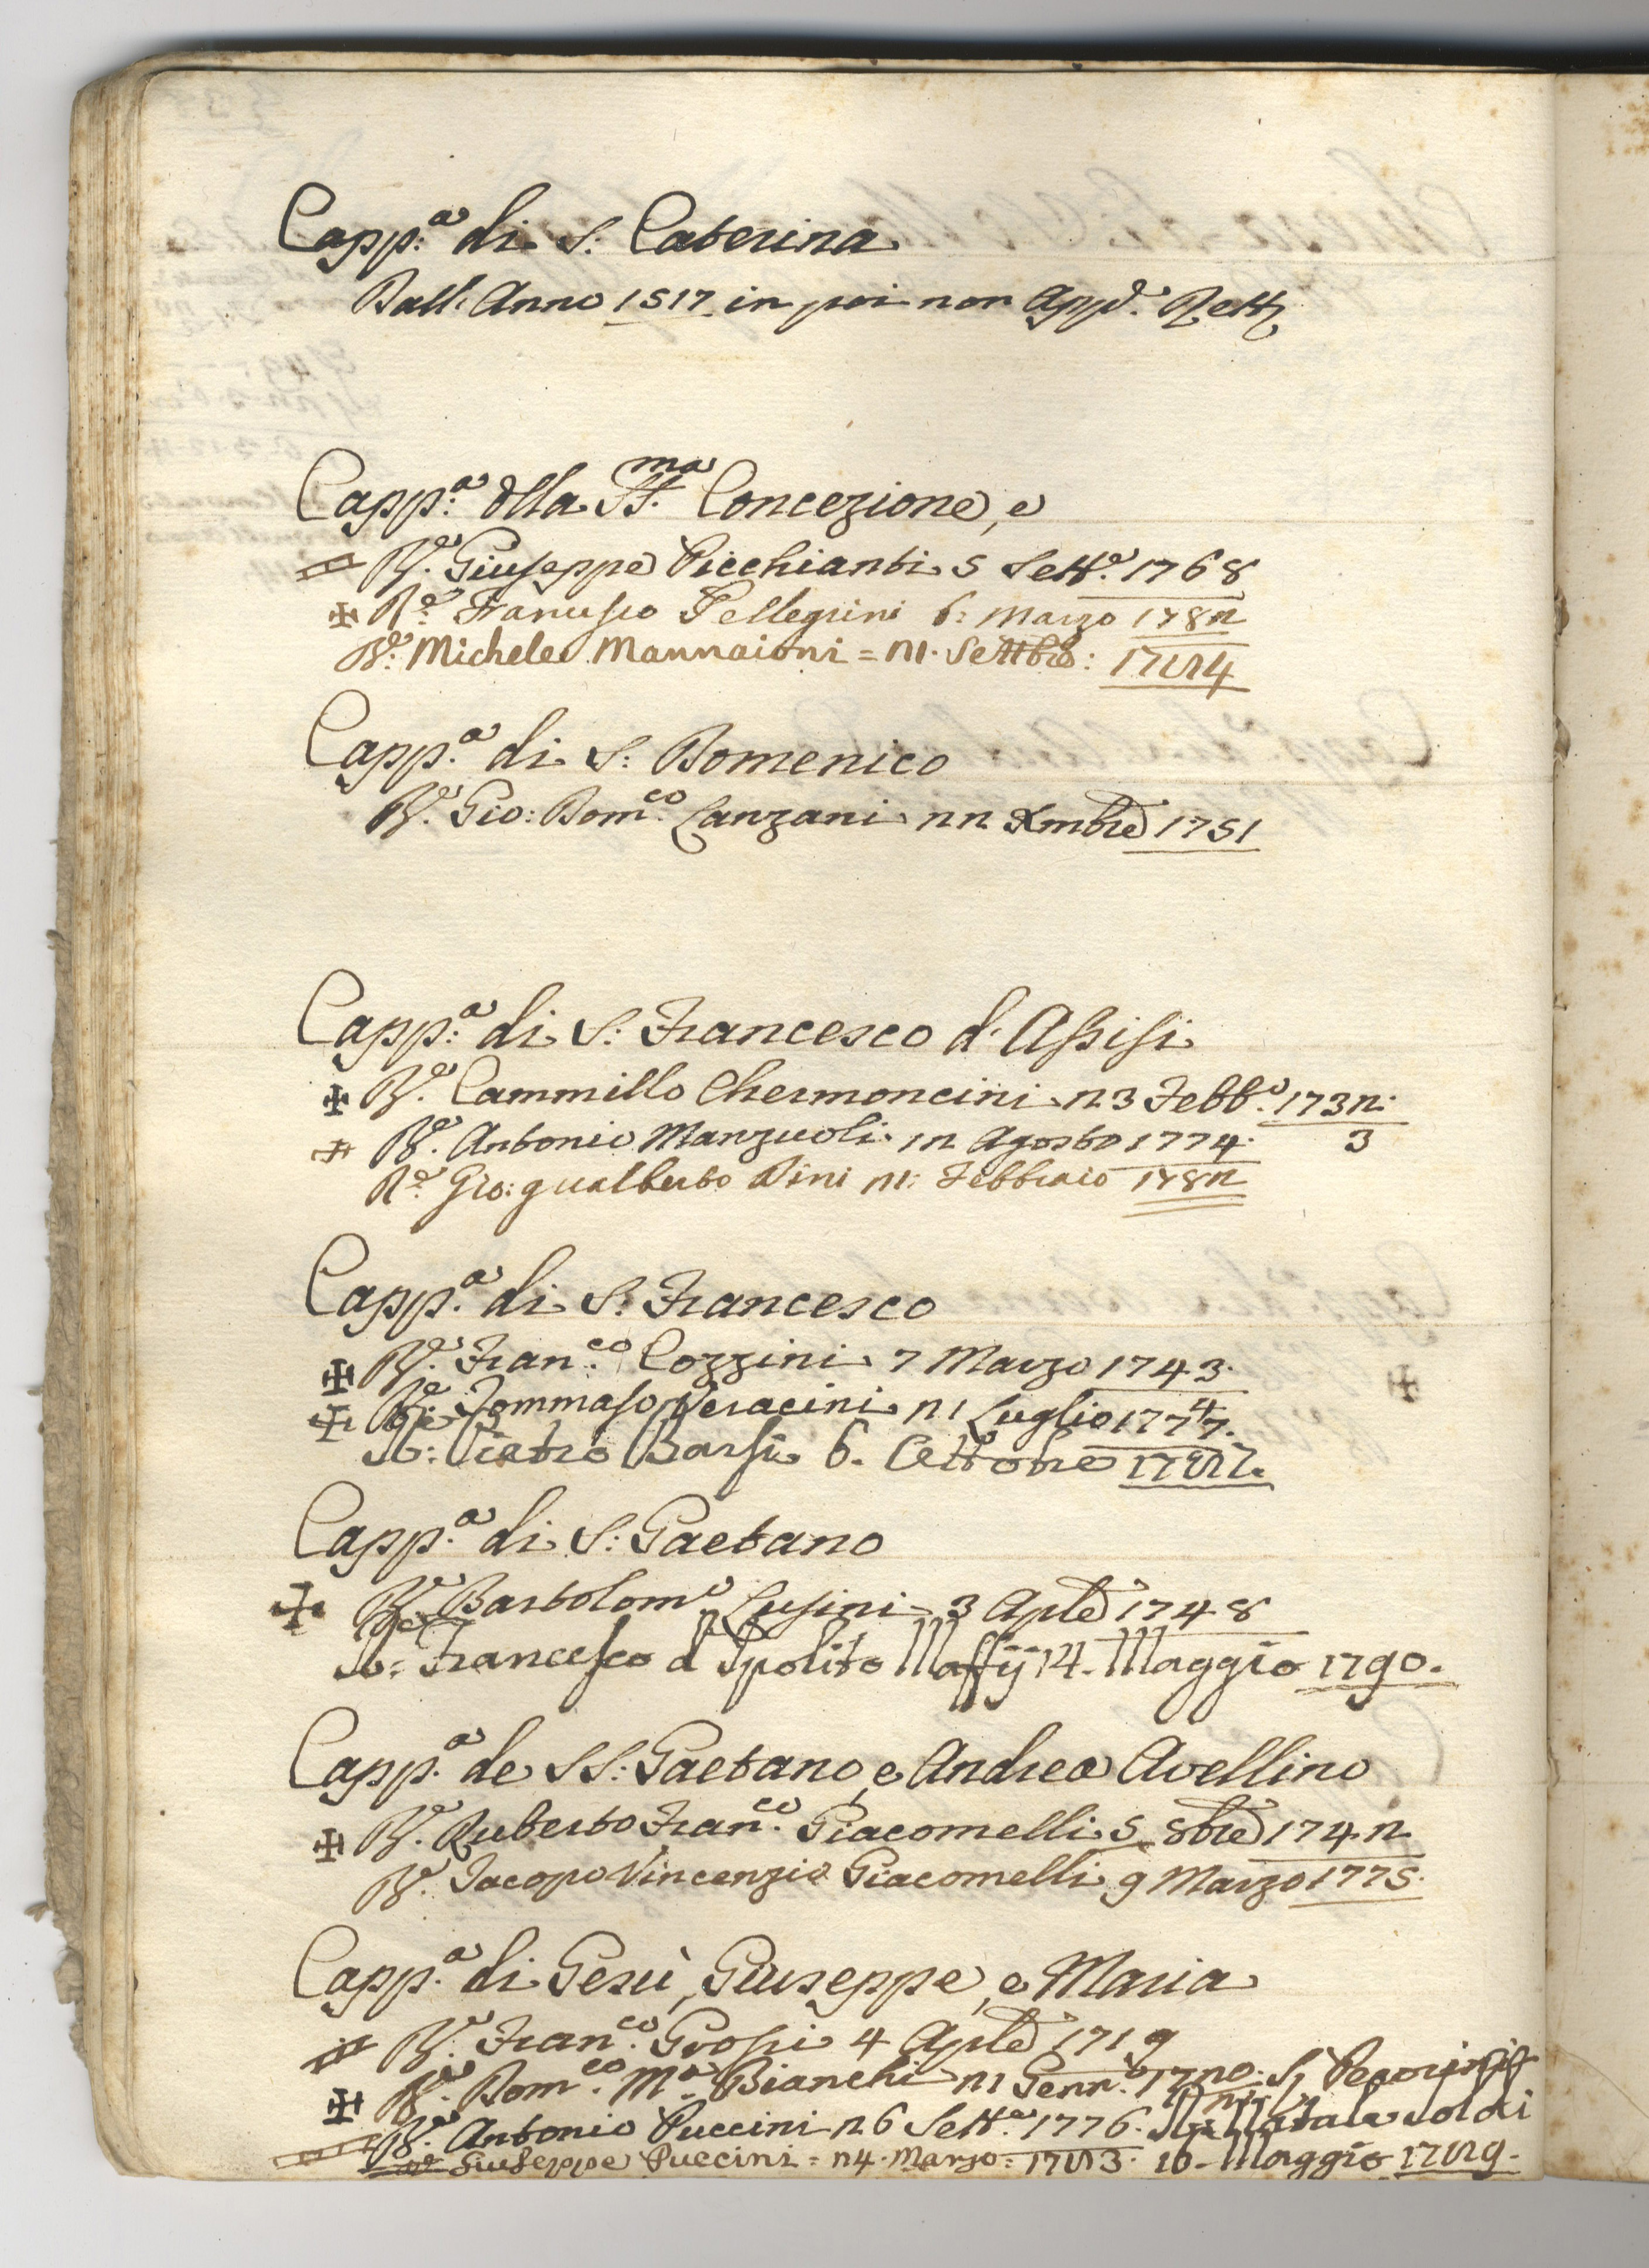 Capp:ª di S: Caterina
Dall'Anno 1517 in poi non app.e Rett.
Capp:ª dlla SS.ma Concezione, e
R.e Giuseppe Picchianti 5 Sett.e 1768
✠ R.e Francesco Pellegrini 6: Marzo 1782
R.e Michele Mannaioni = 21. Settbre: 1784
Capp.ª di S: Domenico
R.e Gio: Dom.co Lanzani 22 Xmbre 1751
Capp:ª di S: Francesco d'Assisi
✠ R.e Cammillo Chermoncini 23 Febb.o 1732:
3
R.e Antonio Manzuoli 12 Agosto 1774.
R.e Gio: gualberto Dini 21: Febbraio 1782
Capp.ª di S: Francesco
✠ R.e Fran.co Cozzini 7 Marzo 1743.
✠ R.e Tommaso Veracini 21 Luglio 1777.
4
R.e Pietro Barsi 6. Ottobre 1787.
Capp.ª di S: Gaetano
✠ R.e Bartolom.o Lusini 3 Aple 1748
R.e Francesco d'Ipolito Maffij 14. Maggio 1790.
Capp.ª de SS: Gaetano, e Andrea Avellino
✠ R.e Ruberto Fran.co Giacomelli 5 8bre 1742
R.e Jacopo Vincenzio Giacomelli 9 Marzo 1775.
Capp.ª di Gesù, Giuseppe, e Maria
R.e Fran.co Grossi 4 Aple 1719
✠ R.e Dom.co M.ª Bianchi 21 Genn.o 1720.
R.e Antonio Puccini 26 Sett.e 1776. Natale Soldi
R.e Giuseppe Puccini = 24. Marzo = 1783. 16. Maggio 1789.